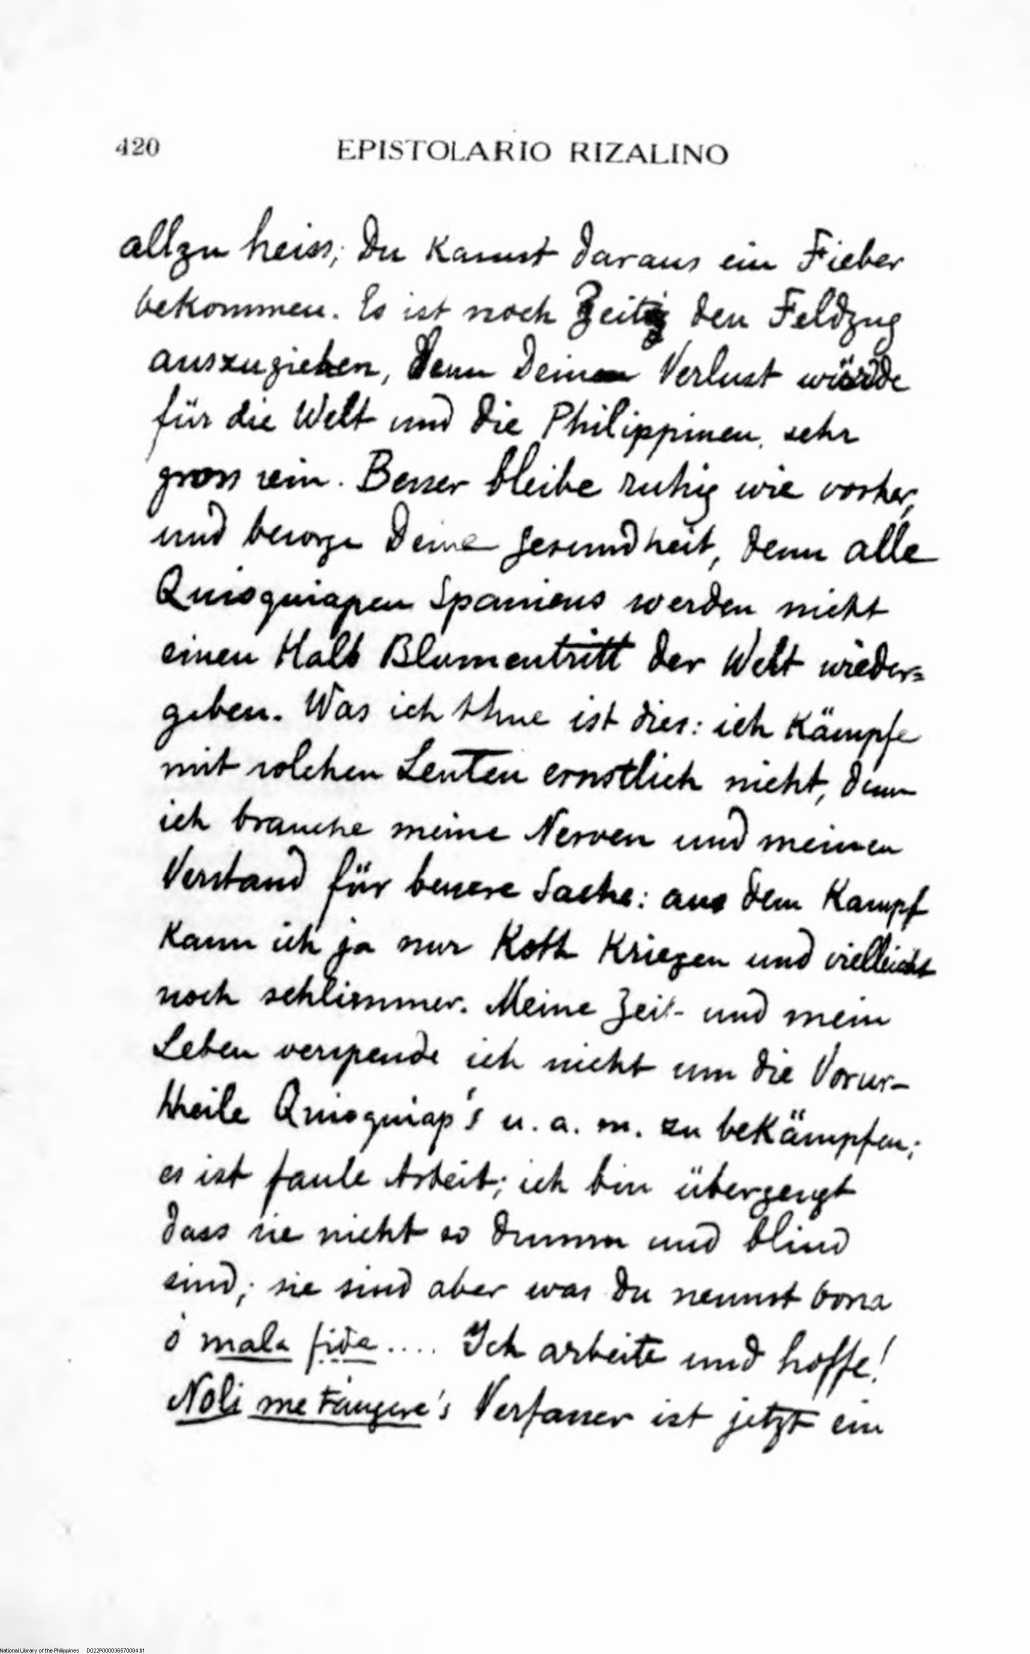 420 EPISTOLARIO RIZALINO
allzu heiss; du kannst daraus ein Fieber
bekommen. Es ist noch Zeitig den Feldzug
auszuziehen, denn Deinen Verlust würde
für die Welt und die Philippinen sehr
gross sein. Besser bleibe ruhig wie vorher,
und besorge Deine Gesundheit, denn alle
Quioquiapen Spaniens werden nicht
einen Halb Blumentritt der Welt wieder=
geben. Was ich thue ist dies: ich kämpfe
mit solchen Leuten ernstlich nicht, denn
ich brauche meine Nerven und meinen
Verstand für bessere Sache: aus dem Kampf
kann ich ja nur Koth kriegen und vielleicht
noch schlimmer. Meine Zeit und mein
Leben verspende ich nicht um die Vorur-
theile Quioquiap's u. a. m. zu bekämpfen;
es ist faule Arbeit; ich bin überzeugt
dass sie nicht so dumm und blind
sind; sie sind aber was du nennst bona
ó mala fide .... Ich arbeite und hoffe!
Noli me Tangere's Verfasser ist jetzt ein
National Library of the Philippines